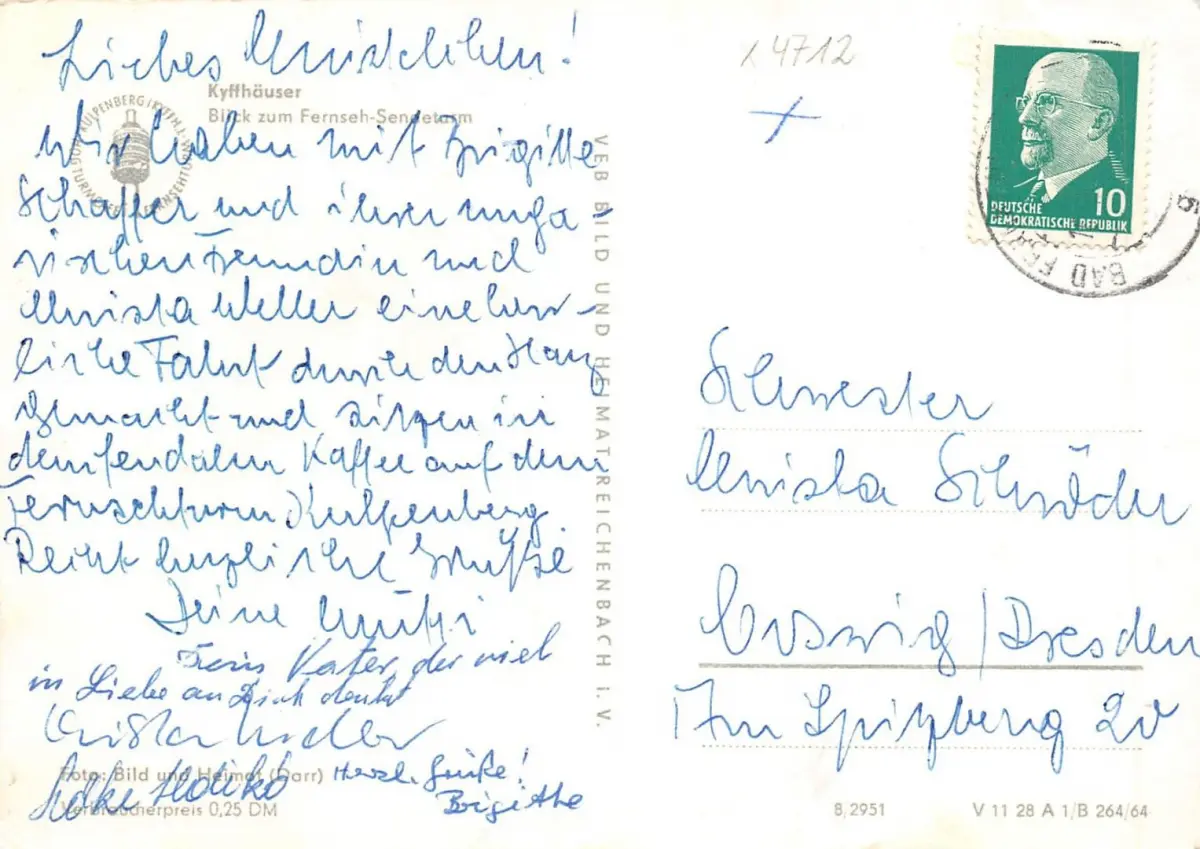 Liebes Christelchen!
Kyffhäuser
Blick zum Fernseh-Sendeturm
wir haben mit Brigitte
Schaffer und ihrer unga
rischen Freundin und
Christa Weller eine herr-
liche Fahrt durch den Harz
gemacht und sitzen in
dem feudalen Kaffee auf dem
Fernsehturm Kulpenberg
Recht herzliche Grüße
Deine Mutti
Dein Vater, der viel
in Liebe an Dich denkt
Christa
Herzl. Grüße!
Brigitte
Foto: Bild und Heimat (Darr)
Verbraucherpreis 0,25 DM
VEB BILD UND HEIMAT REICHENBACH I. V.
x 4712
10
DEUTSCHE
DEMOKRATISCHE REPUBLIK
BAD
Schwester
Christa Schröder
Coswig/Dresden
Am Spitzberg 20
8/2951
V 11 28 A 1/B 264/64